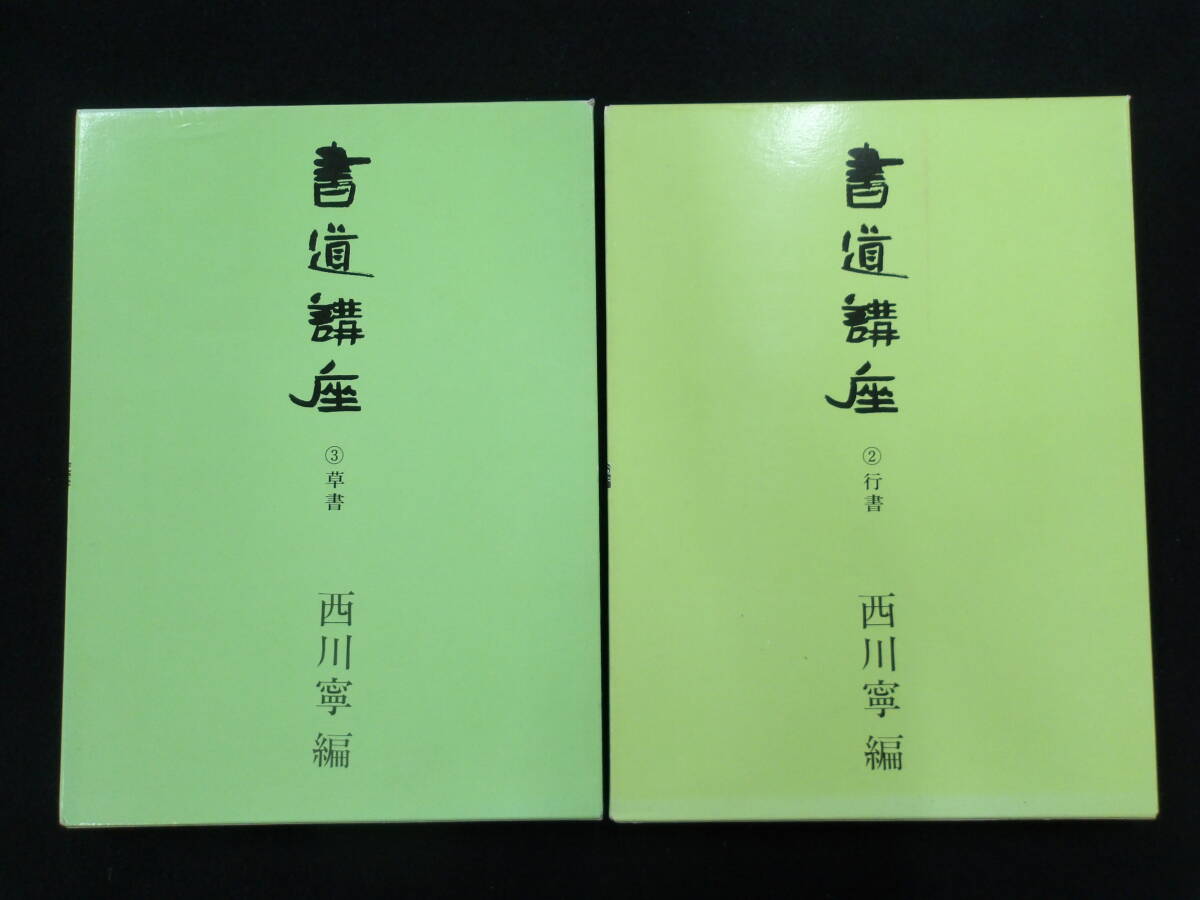 書道講座
③草書
西川寧編
書道講座
②行書
西川寧編